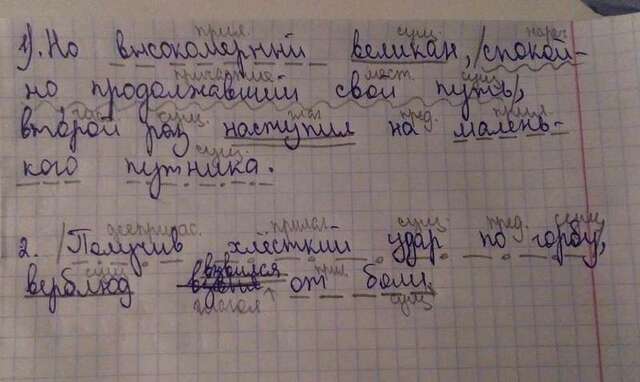 прил. сущ. нареч.
1). Но высокомерный великан, /спокой-
причастие мест. сущ.
но продолжавший свой путь/,
сущ. глаг пред. прил
второй раз наступил на малень-
сущ.
кого путника.
дееприч прилаг. сущ. пред. сущ
2. /Получив хлёсткий удар по горбу,
сущ. взвился при.
верблюд от боли.
глагол сущ